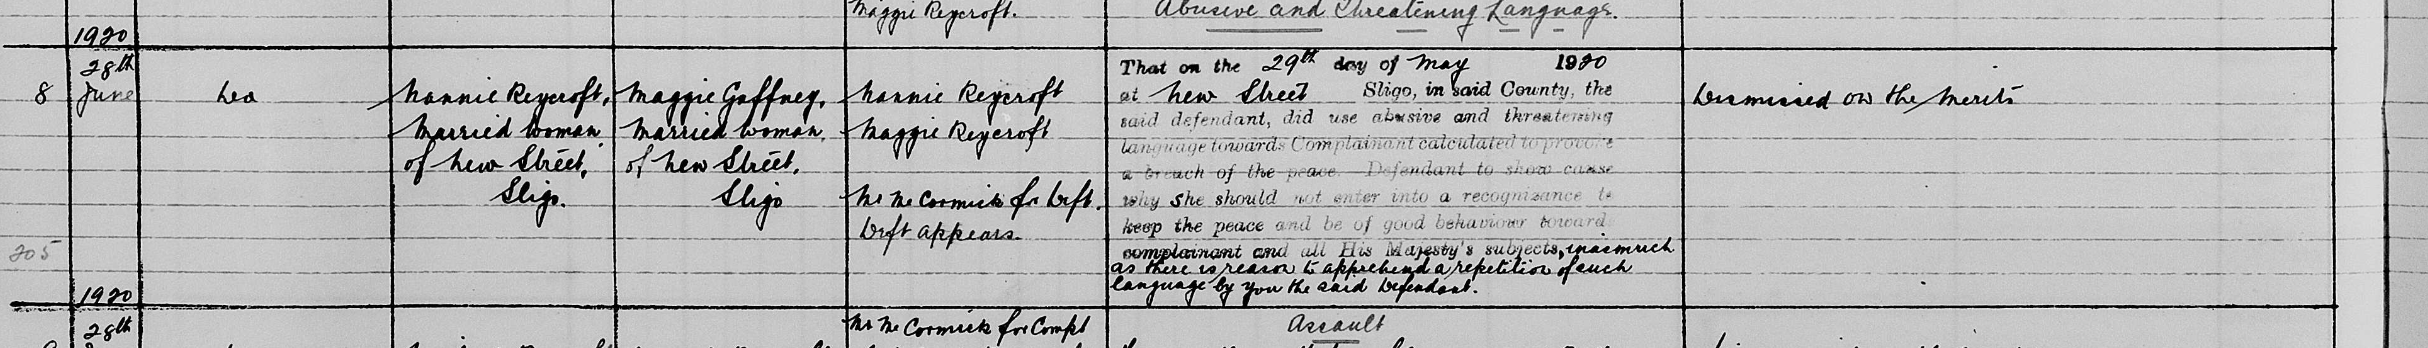 Maggie Reycroft.
Abusive and Threatening Language.
1920
8
28th
June
Do
Nannie Reycroft,
Married woman
of New Street,
Sligo.
Maggie Gaffney,
Married woman,
of New Street,
Sligo
Nannie Reycroft
Maggie Reycroft
Mr McCormick for Deft.
Deft appears.
That on the 29th day of May 1920
at New Street Sligo, in said County, the
said defendant, did use abusive and threatening
language towards Complainant calculated to provoke
a breach of the peace. Defendant to show cause
why She should not enter into a recognizance to
keep the peace and be of good behaviour toward
complainant and all His Majesty's subjects, inasmuch
as there is reason to apprehend a repetition of such
language by you the said Defendant.
Dismissed on the Merits
205
1920
28th
Mr McCormick for Compt
Assault